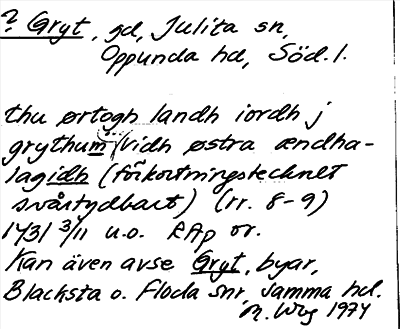 ? Gryt, gd, Julita sn,
Oppunda hd, Söd. l.
thu ørtogh landh iordh j
grythum vidh østra ændha-
lagidh (förkortningstecknet
svårtydbart) (rr. 8-9)
1431 3/11 u.o. RAp or.
Kan även avse Gryt, byar,
Blacksta o. Floda snr, samma hd.
M. Wbg 1974